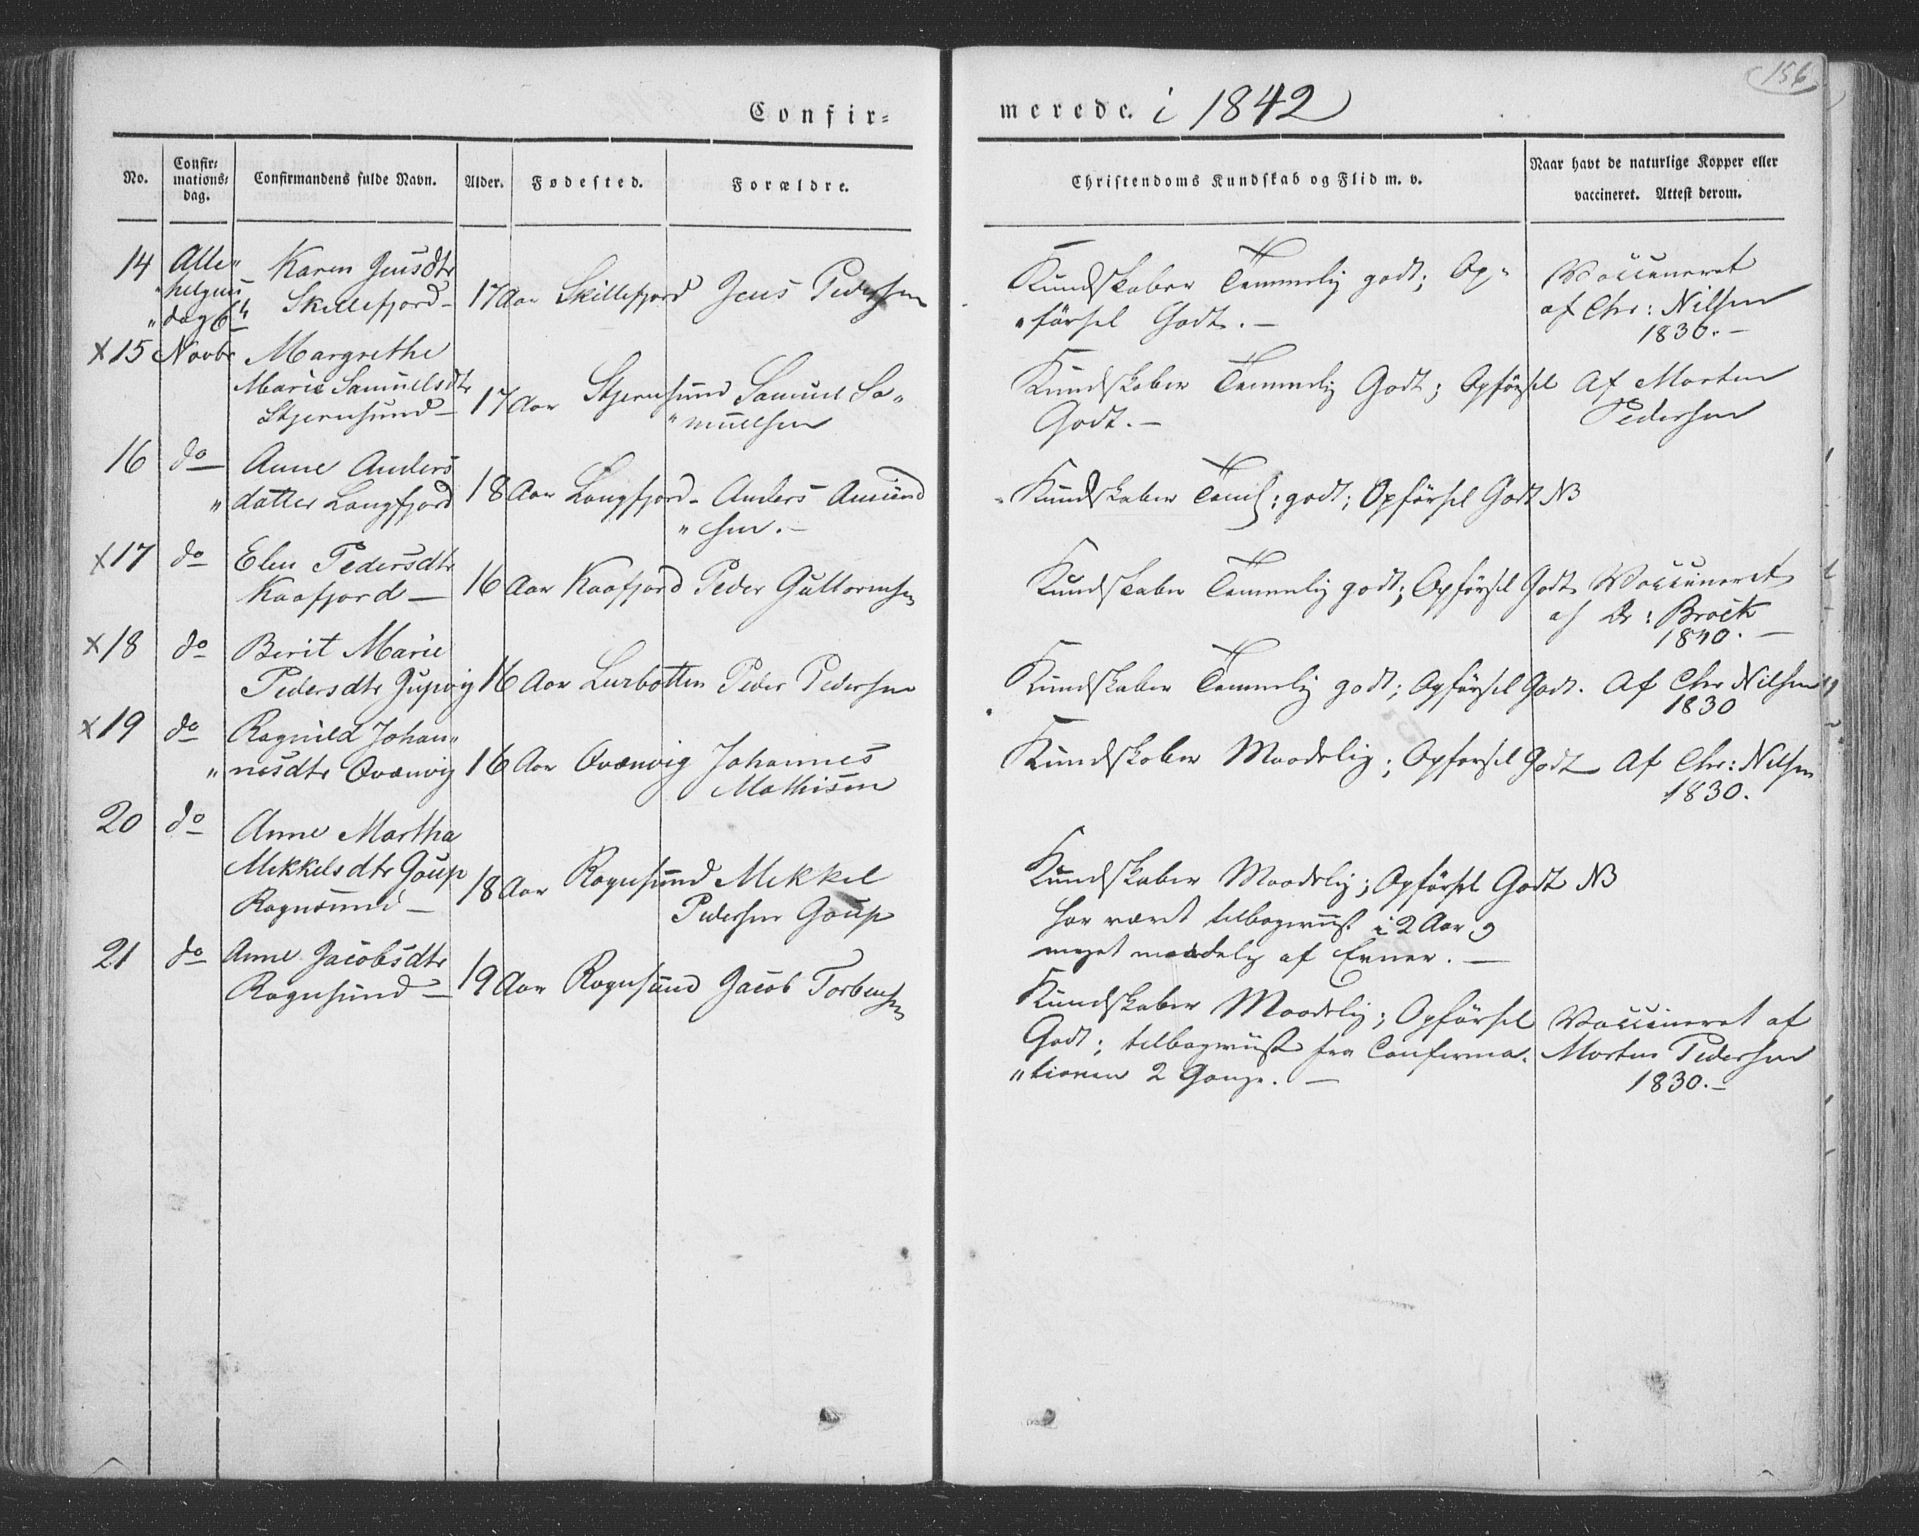 156
Confir=
merede. i 1842
No.
Confir=
mations=
dag.
Confirmandens fulde Navn.
Alder.
Fødested.
Forældre.
Christendoms Kundskab og Flid m. v.
Naar havt de naturlige Kopper eller
vaccineret. Attest derom.
14 Alle"
"helgens
"dag 6te
Karen Jensdtr
Skillefjord –
17 Aar Skillefjord Jens Pedersen
Kundskaber Temmelig godt; Op"
"førsel Godt. –
Vaccineret
af Chr: Nilsen
1830. –
x 15 Novbr Margrethe
Marie Samuelsdtr
Stjernsund –
17 Aar Stjernsund Samuel Sa"
"muelsen
Kundskaber Temmelig Godt; Opførsel
Godt. –
Af Morten
Pedersen
16 do Anne Anders
"datter Langfjord
18 Aar Langfjord – Anders Amund
"sen. –
Kundskaber Teml: godt; Opførsel Godt NB
x 17 do Elen Pedersdtr
Kaafjord –
16 Aar Kaafjord Peder Guttormsen
Kundskaber Temmelig godt; Opførsel Godt
Vaccineret
af Dr: Brock
1840. –
x 18 do Berit Marie
Pedersdtr
16 Aar Lerbotten Peder Pedersen
Kundskaber Temmelig godt; Opførsel Godt. Af Chr Nilsen
1830
x 19 do Ragnild Johan"
"nesdtr Qvænvig
16 Aar Qvænvig Johannes
Mathisen
Kundskaber Maadelig; Opførsel Godt Af Chr: Nilsen
1830.
20 do Anne Martha
Mekkelsdtr Goup
Rognsund –
18 Aar Rognsund Mekkel
Pedersen Goup
Kundskaber Maadelig; Opførsel Godt NB
har været tilbageviist i 2 Aar og
meget maadelig af Evner. –
21 do Anne Jacobsdtr
Rognsund –
19 Aar Rognsund Jacob Torbensen
Kundskaber Maadelig; Opførsel
Godt; tilbageviist fra Confirma"
"tionen 2 Gange. –
Vaccineret af
Morten Pedersen
1830. –